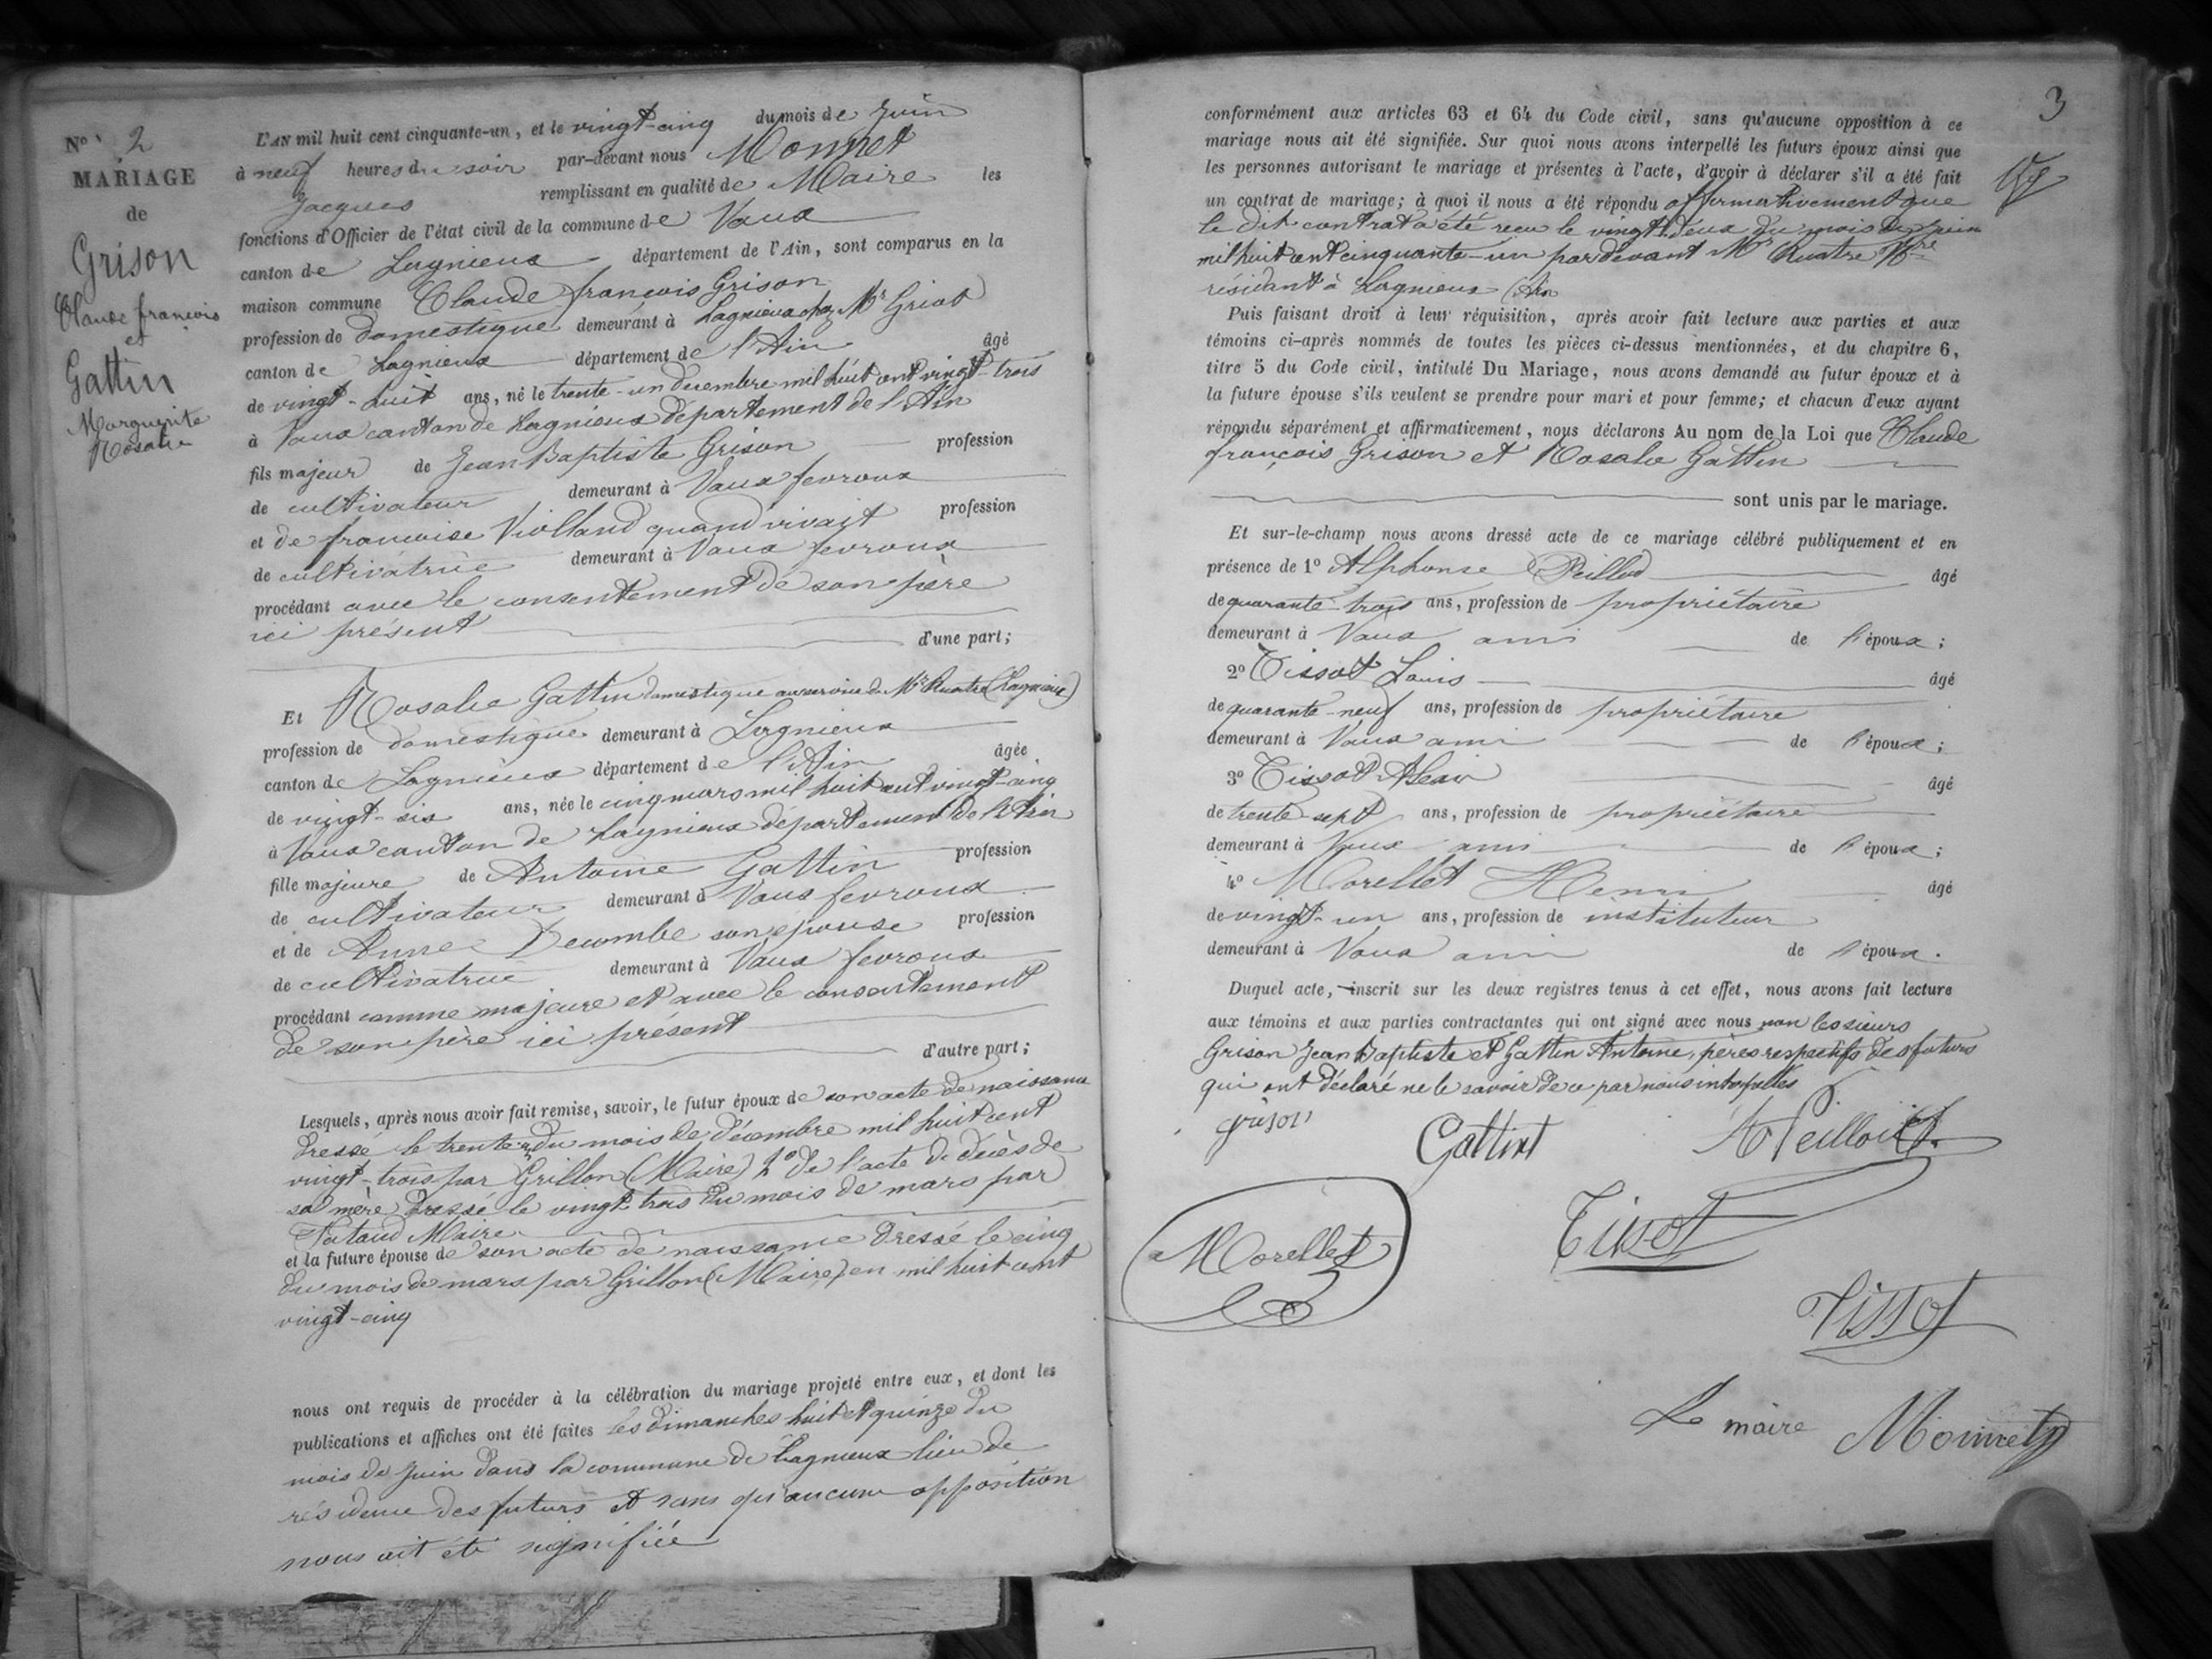 No 2
MARIAGE
de
Grison
Claude françois
et
Gattin
Marguerite
Rosalie
L'AN mil huit cent cinquante-un, et le vingt-cinq du mois de Juin
à neuf heures du soir par-devant nous Monnet
Jacques remplissant en qualité de Maire les
fonctions d'Officier de l'état civil de la commune de Vaux
canton de Lagnieux département de l'Ain, sont comparus en la
maison commune Claude françois Grison
profession de domestique demeurant à Lagnieux chez Mr Griot
canton de Lagnieux département de l'Ain âgé
de vingt-huit ans, né le trente-un decembre mil huit cent vingt-trois
à Vaux canton de Lagnieux département de l'Ain
fils majeur de Jean Baptiste Grison profession
de cultivateur demeurant à Vaux fevroux
et de francoise Violland quand vivait profession
de cultivatrice demeurant à Vaux fevroux
procédant avec le consentement de son père
ici présent d'une part;
Et Rosalie Gattin domestique au service de Mr Quatre (Lagnieux)
profession de domestique demeurant à Lagnieux
canton de Lagnieux département de l'Ain âgée
de vingt-six ans, née le cinq mars mil huit cent vingt-cinq
à Vaux canton de Lagnieux département de l'Ain
fille majeure de Antoine Gattin profession
de cultivateur demeurant à Vaux fevroux
et de Anne Decombe son épouse profession
de cultivatrice demeurant à Vaux fevroux
procédant comme majeure et avec le consentement
de son père ici présent d'autre part;
Lesquels, après nous avoir fait remise, savoir, le futur époux de son acte de naissance
dressé le trente un du mois de décembre mil huit cent
vingt-trois par Grillon (Maire) 2o de l'acte de décès de
sa mère dressé le vingt trois du mois de mars par
Maire
et la future épouse de son acte de naissance dressé le cinq
du mois de mars par Grillon (Maire) en mil huit cent
vingt-cinq
nous ont requis de procéder à la célébration du mariage projeté entre eux, et dont les
publications et affiches ont été faites les dimanches huit et quinze du
mois de juin dans la commune de Lagnieux lieu de
résidence des futurs et sans qu'aucune opposition
nous ait été signifiée
3
conformément aux articles 63 et 64 du Code civil, sans qu'aucune opposition à ce
mariage nous ait été signifiée. Sur quoi nous avons interpellé les futurs époux ainsi que
les personnes autorisant le mariage et présentes à l'acte, d'avoir à déclarer s'il a été fait
un contrat de mariage; à quoi il nous a été répondu affirmativement que
le dit contrat a été reçu le vingt deux du mois de juin
mil huit cent cinquante-un par devant Mr Quatre Nre
résidant à Lagnieux (Ain
Puis faisant droit à leur réquisition, après avoir fait lecture aux parties et aux
témoins ci-après nommés de toutes les pièces ci-dessus mentionnées, et du chapitre 6,
titre 5 du Code civil, intitulé Du Mariage, nous avons demandé au futur époux et à
la future épouse s'ils veulent se prendre pour mari et pour femme; et chacun d'eux ayant
répondu séparément et affirmativement, nous déclarons Au nom de la Loi que Claude
françois Grison et Rosalie Gattin
sont unis par le mariage.
Et sur-le-champ nous avons dressé acte de ce mariage célébré publiquement et en
présence de 1o Alphonse Peillod âgé
de quarante-trois ans, profession de propriétaire
demeurant à Vaux ami de l'époux;
2o Tissot Louis âgé
de quarante-neuf ans, profession de propriétaire
demeurant à Vaux ami de l'époux;
3o Tissot âgé
de trente-sept ans, profession de propriétaire
demeurant à Vaux ami de l'époux;
4o Morellet Henri âgé
de vingt-un ans, profession de instituteur
demeurant à Vaux ami de l'époux.
Duquel acte, inscrit sur les deux registres tenus à cet effet, nous avons fait lecture
aux témoins et aux parties contractantes qui ont signé avec nous non les sieurs
Grison Jean Baptiste et Gattin Antoine, pères respectifs des futurs
qui ont déclaré ne le savoir de ce par nous interpellés
grison
Gattint
Peilloud
Morellet
Tissot
Tissot
Le maire Monnet